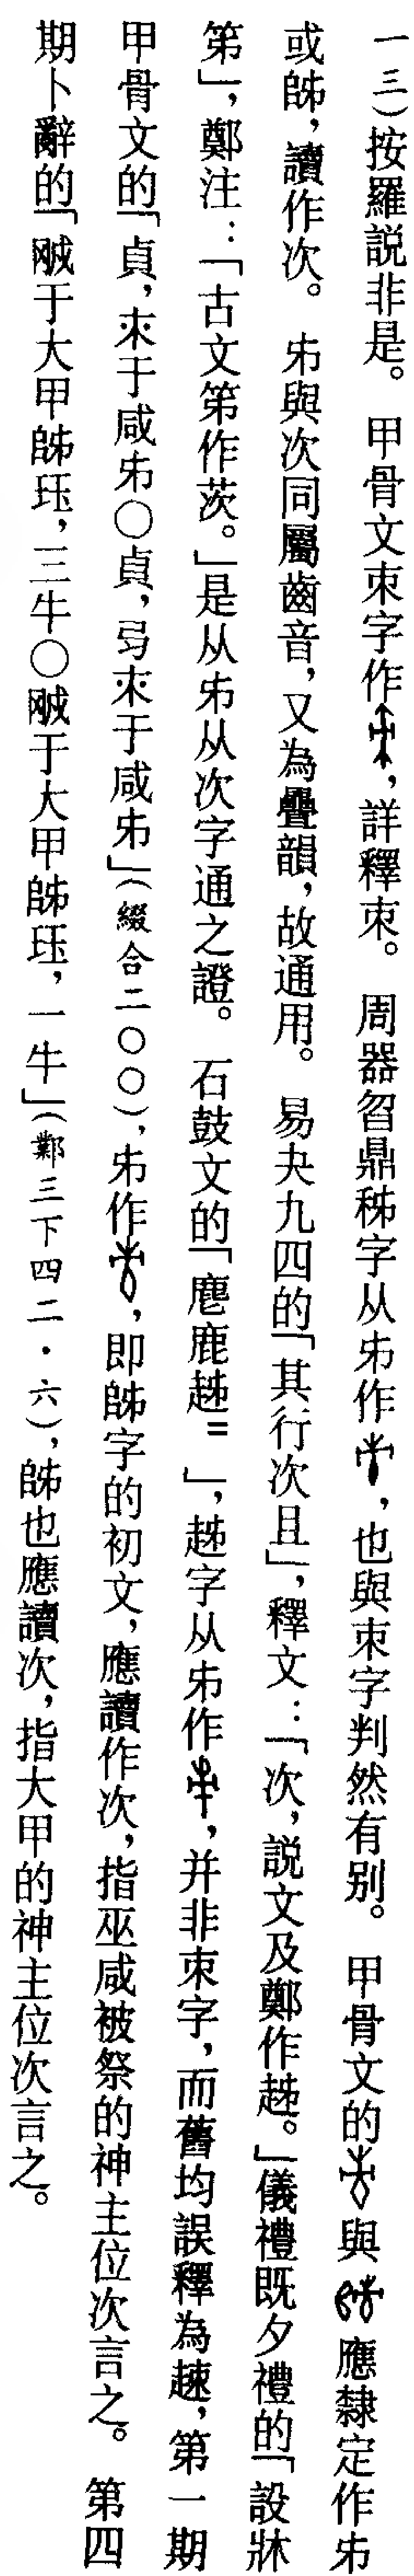 一三）按羅説非是。甲骨文朿字作，詳釋朿。周器曶鼎秭字从𠂔作，也與朿字判然有别。甲骨文的與應隸定作𠂔
或𠂤𠂔，讀作次。𠂔與次同屬齒音，又為疊韻，故通用。易夬九四的「其行次且」，釋文：「次，説文及鄭作趀。」儀禮既夕禮的「設牀
笫」，鄭注：「古文笫作茨。」是从𠂔从次字通之證。石鼓文的「麀鹿趀＝」，趀字从𠂔作，并非朿字，而舊均誤釋為趚，第一期
甲骨文的「貞，來于咸𠂔〇貞，弜來于咸𠂔」（綴合二〇〇），𠂔作，即字的初文，應讀作次，指巫咸被祭的神主位次言之。第四
期卜辭的「于大甲玨，三牛〇于大甲玨，一牛」（鄴三下四二·六），也應讀次，指大甲的神主位次言之。